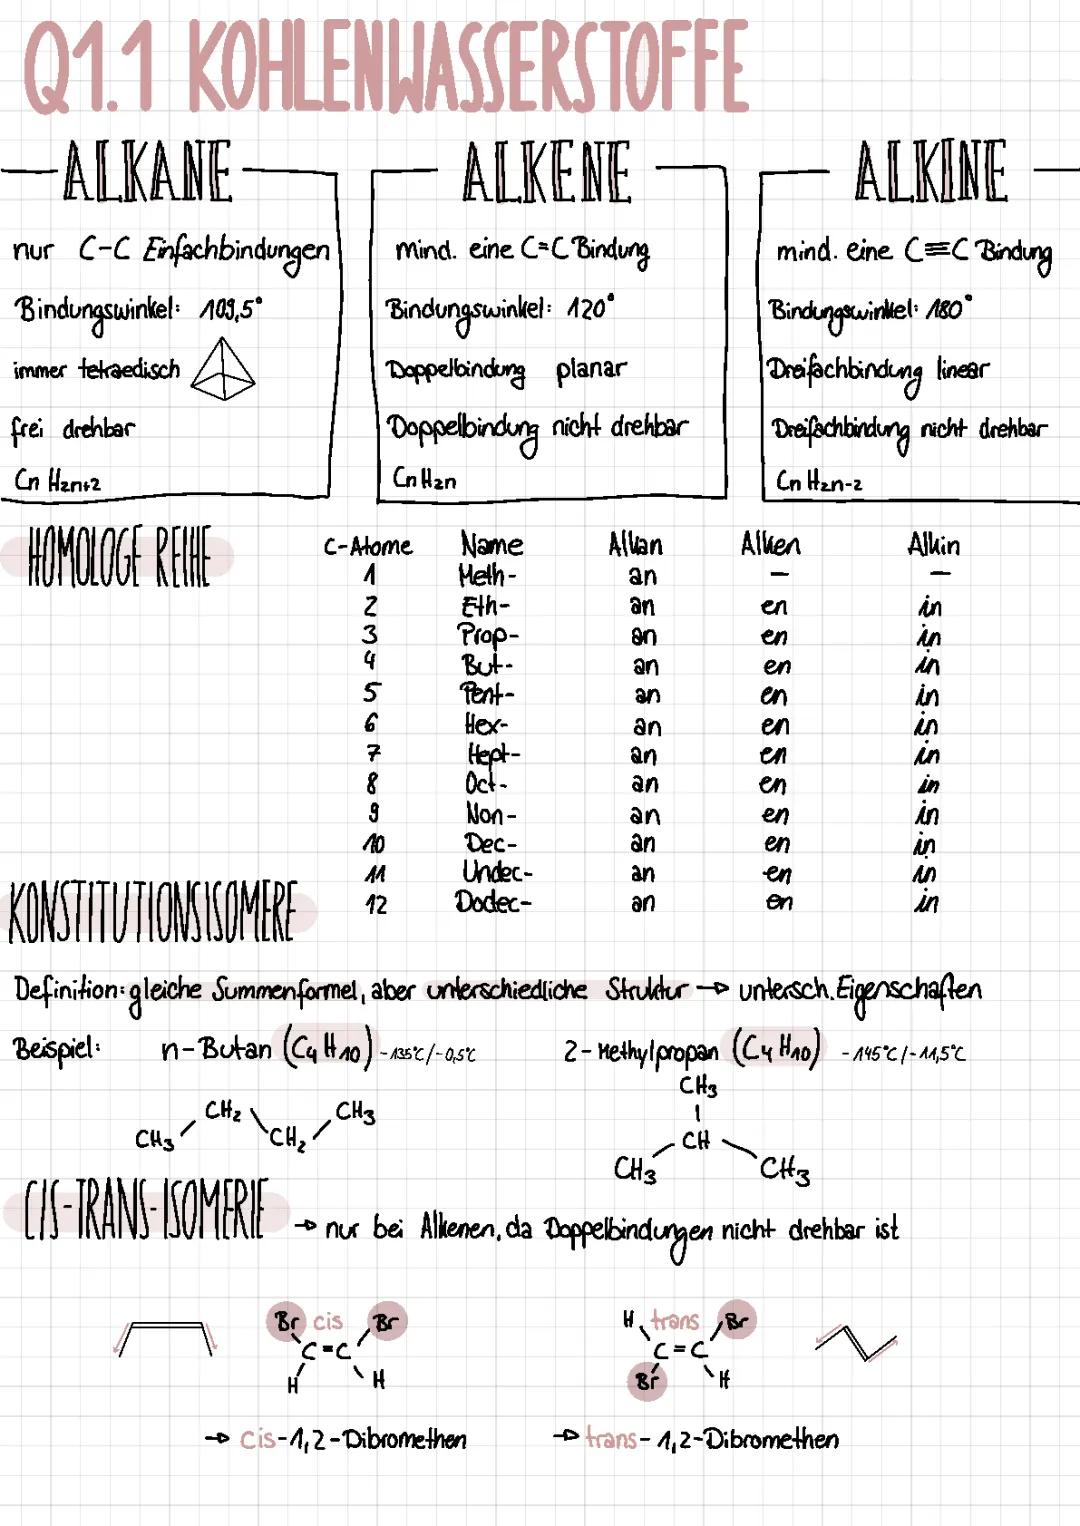 Q1.1 KOHLENWASSERSTOFFE
ALKANE
nur C-C Einfachbindungen
Bindungswinkel: 109,5°
immer tetraedisch
frei drehbar
CnH2n+2
ALKENE
mind. eine C=C Bindung
Bindungswinkel: 120°
Doppelbindung planar
Doppelbindung nicht drehbar
CnH2n
ALKINE
mind. eine C≡C Bindung
Bindungswinkel: 180°
Dreifachbindung linear
Dreifachbindung nicht drehbar
CnH2n-2
HOMOLOGE REIHE
C-Atome Name Alkan Alken Alkin
1 Meth- an – –
2 Eth- an en in
3 Prop- an en in
4 But- an en in
5 Pent- an en in
6 Hex- an en in
7 Hept- an en in
8 Oct- an en in
9 Non- an en in
10 Dec- an en in
11 Undec- an en in
12 Dodec- an en in
KONSTITUTIONSISOMERE
Definition: gleiche Summenformel, aber unterschiedliche Struktur → untersch. Eigenschaften
Beispiel: n-Butan (C4H10) -135°C/-0,5°C 2-Methylpropan (C4H10) -145°C/-11,5°C
CH3 CH2 CH2 CH3
CH3
CH
CH3 CH3
CIS-TRANS-ISOMERIE → nur bei Alkenen, da Doppelbindungen nicht drehbar ist
Br cis Br
C=C
H H
H trans Br
C=C
Br H
→ cis-1,2-Dibromethen
→ trans-1,2-Dibromethen